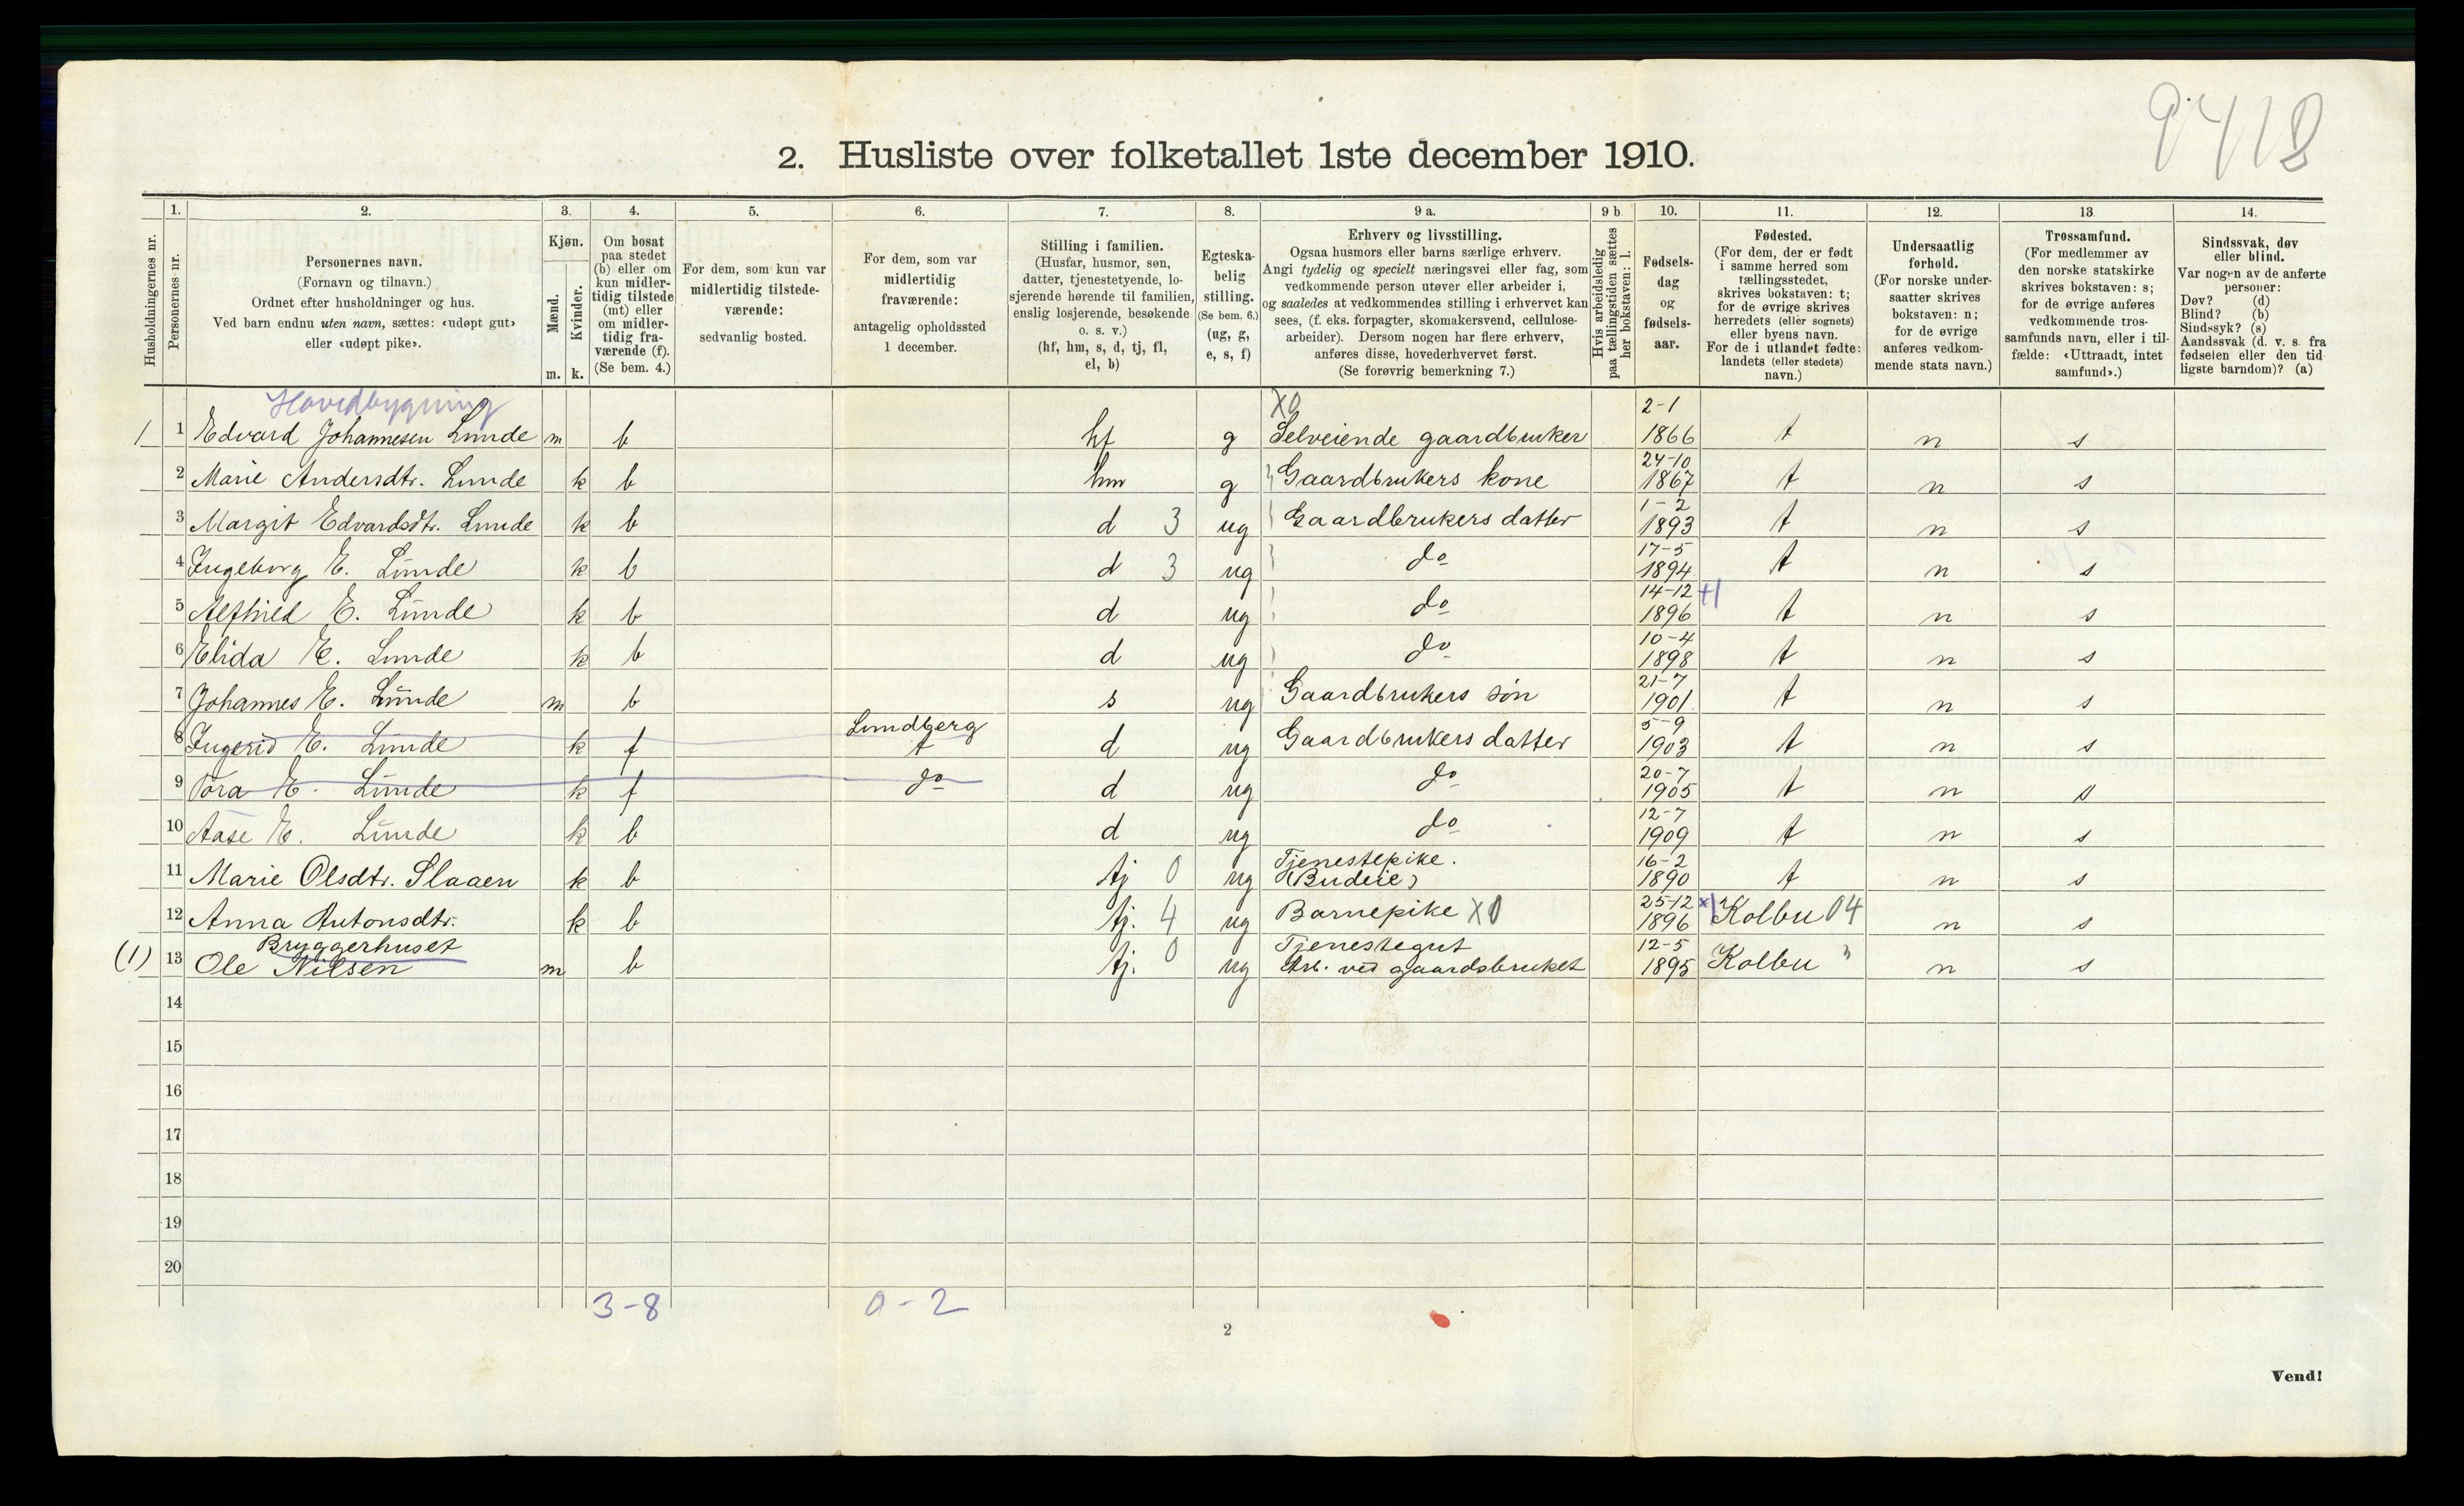 9418
2. Husliste over folketallet 1ste december 1910.
Husholdningernes nr.
1. Personernes nr.
2. Personernes navn.
(Fornavn og tilnavn.)
Ordnet efter husholdninger og hus.
Ved barn endnu uten navn, sættes: «udøpt gut»
eller «udøpt pike».
3. Kjøn.
Mænd. m.
Kvinder. k.
4. Om bosat
paa stedet
(b) eller om
kun midler-
tidig tilstede
(mt) eller
om midler-
tidig fra-
værende (f).
(Se bem. 4.)
5. For dem, som kun var
midlertidig tilstede-
værende:
sedvanlig bosted.
6. For dem, som var
midlertidig
fraværende:
antagelig opholdssted
1 december.
7. Stilling i familien.
(Husfar, husmor, søn,
datter, tjenestetyende, lo-
sjerende hørende til familien,
enslig losjerende, besøkende
o. s. v.)
(hf, hm, s, d, tj, fl,
el, b)
8. Egteska-
belig
stilling.
(Se bem. 6.)
(ug, g,
e, s, f)
9 a. Erhverv og livsstilling.
Ogsaa husmors eller barns særlige erhverv.
Angi tydelig og specielt næringsvei eller fag, som
vedkommende person utøver eller arbeider i,
og saaledes at vedkommendes stilling i erhvervet kan
sees, (f. eks. forpagter, skomakersvend, cellulose-
arbeider). Dersom nogen har flere erhverv,
anføres disse, hovederhvervet først.
(Se forøvrig bemerkning 7.)
9 b Hvis arbeidsledig
paa tællingstiden sættes
her bokstaven: l.
10. Fødsels-
dag
og
fødsels-
aar.
11. Fødested.
(For dem, der er født
i samme herred som
tællingsstedet,
skrives bokstaven: t;
for de øvrige skrives
herredets (eller sognets)
eller byens navn.
For de i utlandet fødte:
landets (eller stedets)
navn.)
12. Undersaatlig
forhold.
(For norske under-
saatter skrives
bokstaven: n;
for de øvrige
anføres vedkom-
mende stats navn.)
13 Trossamfund.
(For medlemmer av
den norske statskirke
skrives bokstaven: s;
for de øvrige anføres
vedkommende tros-
samfunds navn, eller i til-
fælde: «Uttraadt, intet
samfund».)
14. Sindssvak, døv
eller blind.
Var nogen av de anførte
personer:
Døv? (d)
Blind? (b)
Sindssyk? (s)
Aandssvak (d. v. s. fra
fødselen eller den tid-
ligste barndom)? (a)
Hovedbygning X0
1 1 Edvard Johannesen Lunde m b hf g Selveiende gaardbruker 2-1 1866 t n s
2 Marie Andersdtr. Lunde k b hm g Gaardbrukers kone 24-10 1867 t n s
3 Margit Edvardsdtr. Lunde k b d 3 ug Gaardbrukers datter 1-2 1893 t n s
4 Ingeborg E. Lunde k b d 3 ug do 17-5 1894 t n s
5 Alfhild E. Lunde k b d ug do 14-12 1896 t n s
6 Elida E. Lunde k b d ug do 10-4 1898 t n s
7 Johannes E. Lunde m b s ug Gaardbrukers søn 21-7 1901 t n s
8 Ingerid E. Lunde k f Lundberg t d ug Gaardbrukers datter 5-9 1903 t n s
9 Tora E. Lunde k f do d ug do 20-7 1905 t n s
10 Aase E. Lunde k b d ug do 12-7 1909 t n s
11 Marie Olsdtr. Slaaen k b tj 0 ug Tjenestepike. (Budeie) 16-2 1890 t n s
12 Anna Antonsdtr. k b tj. 4 ug Barnepike X0 25-12 1896 x Kolbu 04 n s
Bryggerhuset
(1) 13 Ole Nilsen m b tj. 0 ug Tjenestegut Arb. ved gaardsbruket 12-5 1895 Kolbu " n s
14
15
16
17
18
19
20
3-8 0-2
2
Vend!